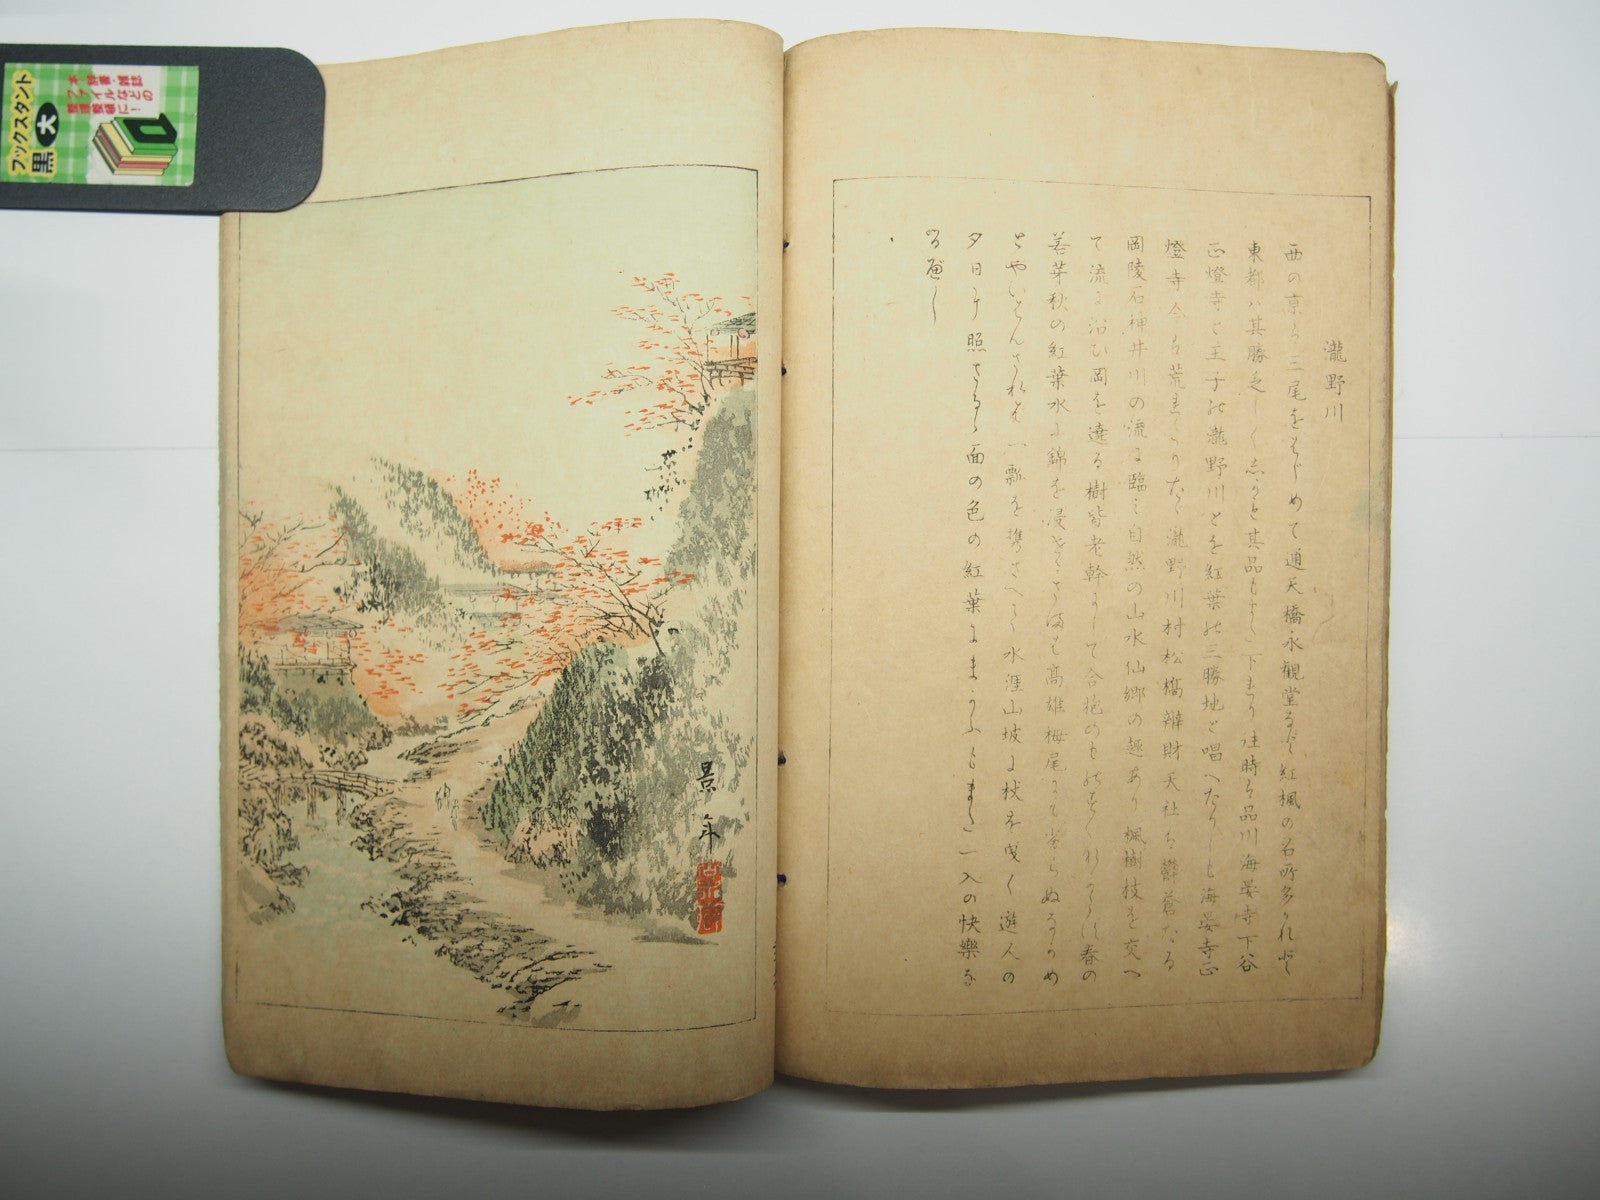 瀧野川
西の京に三尾をはじめて通天橋永観堂など紅楓の名所多かれど
東都ハ其勝乏しく其品も下まり往時は品川海晏寺下谷
正燈寺と王子の瀧野川とを紅葉の三勝地と唱へたりしも海晏寺正
燈寺今は荒たり瀧野川村松橋辯財天社は鬱蒼たる
岡陵石神井川の流に臨み自然の山水仙郷の趣あり楓樹枝を交へ
て流に沿ひ岡を遶る樹皆老幹にして合抱のも春の
若芽秋の紅葉水に錦を浸さまは高雄栂尾にも劣らぬながめ
とやいはんされは一瓢を携さへて水涯山坡に杖を曳く遊人の
夕日に照さるゝ面の色の紅葉にまがふもまた一入の快樂な
るべし
景年
ブックスタント
黒 大
本・辞書・雑誌
ファイルなどの
整理整頓に!